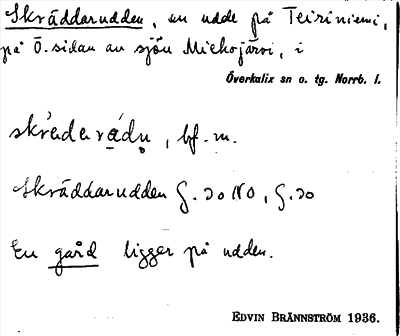 Skräddarudden, en udde på Teiriniemi,
på Ö. sidan av sjön Miekojärvi, i
Överkalix sn o. tg. Norrb. l.
bf. m.
Skräddarudden G. 30 NO, G. 30
En gård ligger på udden.
EDVIN BRÄNNSTRÖM 1936.